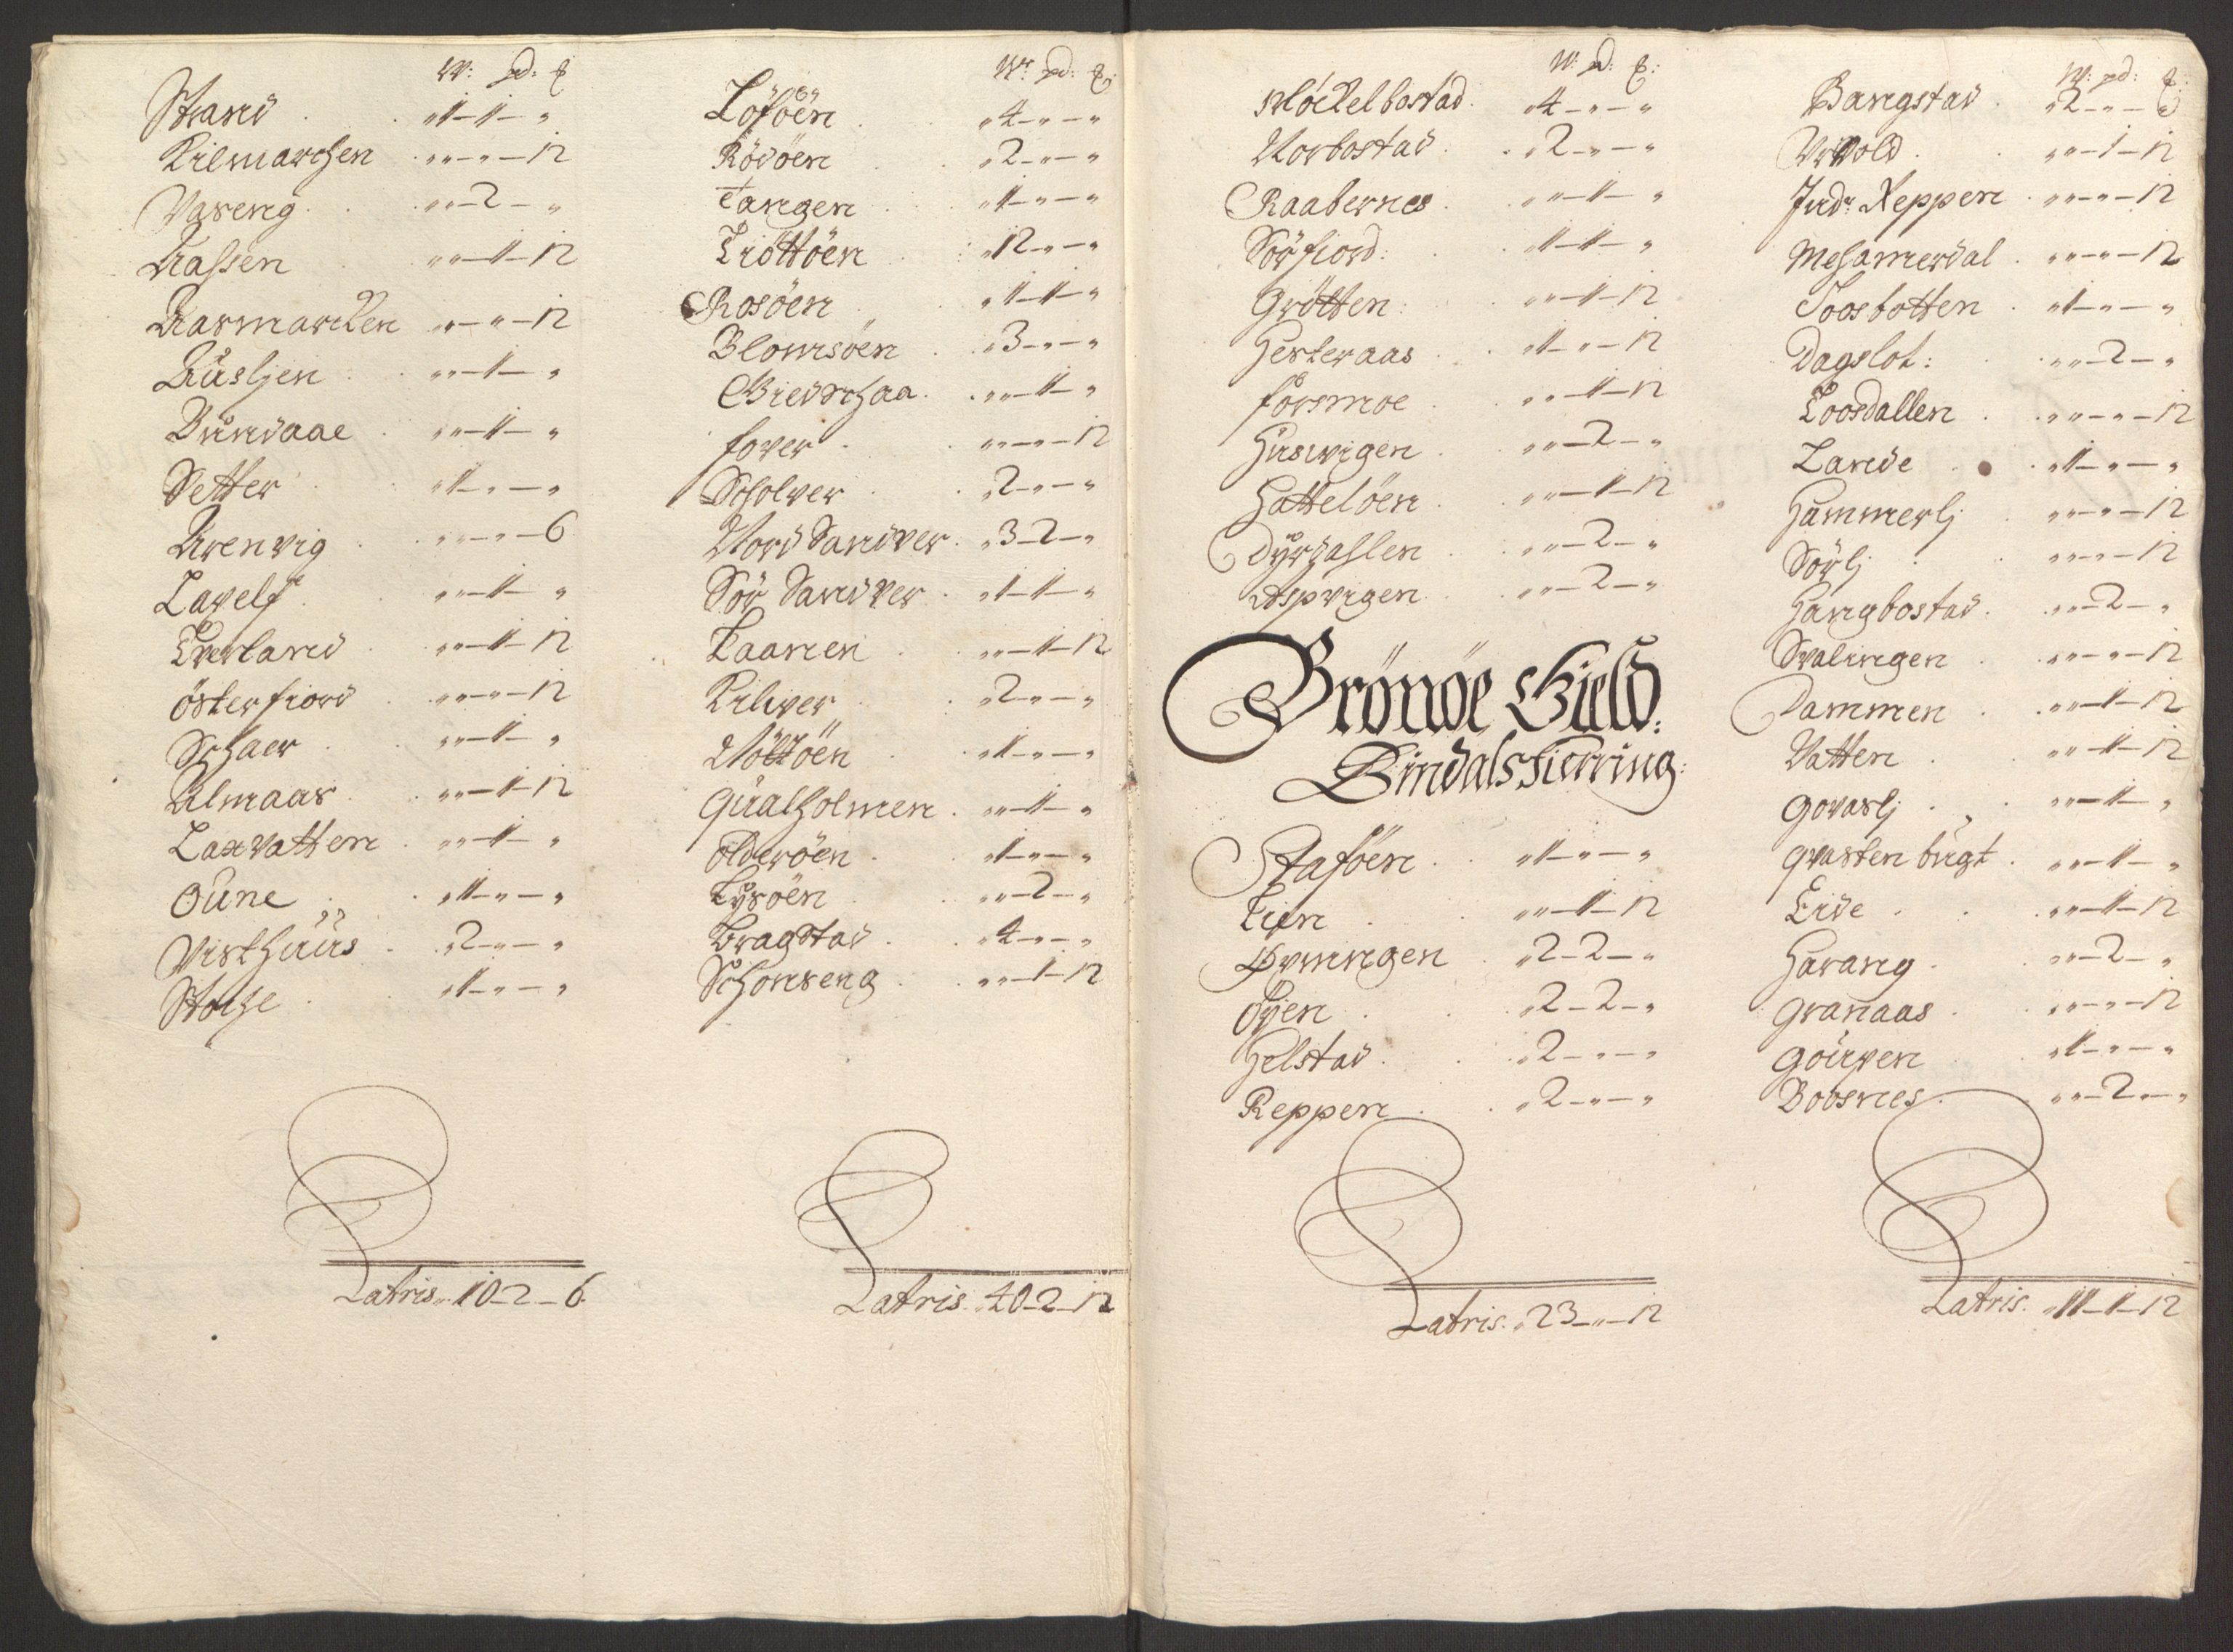 W: pd: ℔
Strand . . „1–1– „
Kilmarchen . „„–„–12
Vaseng . . „„–2– „
Aassen „„–1–12
Aarmarcken „„–„–12
Aüsljen . „„–1– „
Bundaae . „„–1– „
Setter . „1–„– „
Urenvig . „„–„–6
Lavelf . „„–1– „
Everland . „„–1–12
österfiord . „„–„–12
Schaer . . „„–1– „
Almaas . „„–1–12
Laxvatten . „„–1– „
Oune . „1–„– „
Visthüüs . „2–„– „
Stoche . „1–„– „
Latris „10–2–6
Wr pd: ℔:
Löföen . „4–„–„
Rödöen . „2–„–„
Tangen . „1–„–„
Tiöttöen . „12–„–„
Rosöen . „1–1–„
Blomsöen . „3–„–„
Giedschaa . „„–1–„
fover . „„–„–12
Scholver . „2–„–„
Nord Sandver . „3–2–„
Sör Sandver . „1–1–„
Laanen . „„–1–12
Kilver . „2–„–„
Nöttöen . „1–„–„
Qüalholmen . „„–1–„
Olderöen . „1–„–„
Lysöen . „„–2–„
Bragstad . „4–„–„
Schonseng . „„–1–12
Latris „40–2–12
W: pd: ℔:
Möckelbostad . „4–„–„
Norbostad . „2–„–„
Raabernes . „„–1– „
Sörfiord: . „1–1– „
Grötten: . „„–1–12
Hesteraas . „1–„–12
forsmoe . „„–1–12
Huusvigen . „„–2– „
Hattelöen . „„–1–12
Dyrdahlen . „„–2– „
Aspvigen . „„–2– „
Brönöe Gield:
Bindals Fierring:
Staföen . „1–„– „
Lien . „„–1–12
Øvningen . „2–2– „
Oyen . „2–2– „
Helstad . „2–„– „
Reppen . „2–„– „
Latris „23–„–12
W: pd: ℔:
Bangstad . „2–„– „
Vrvold . „„–1–12
Indr Reppen . „„–„–12
Mehamerdal . „„–„–12
Toosbotten . „1–„– „
Dagslot: . „„–2– „
Toosdallen . „„–„–12
Lande . „1–„– „
Hammerlj . „„–„–12
Sörlj . „„–„–12
Hangbostad . „„–2– „
Svalingen . „„–„–12
Dammen . „„–1–12
Vatten . „„–1–12
Govaslj . „„–1– „
Qvasten bugt . „„–1– „
Eide . „„–1–12
Harang . „„–2– „
Granaas . „„–„–12
Göürven . „1–„– „
Boosnes . „„–2– „
Latris „11–1–12